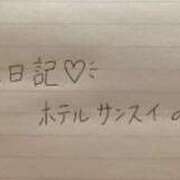 日記♡
ホテル サンスイ の